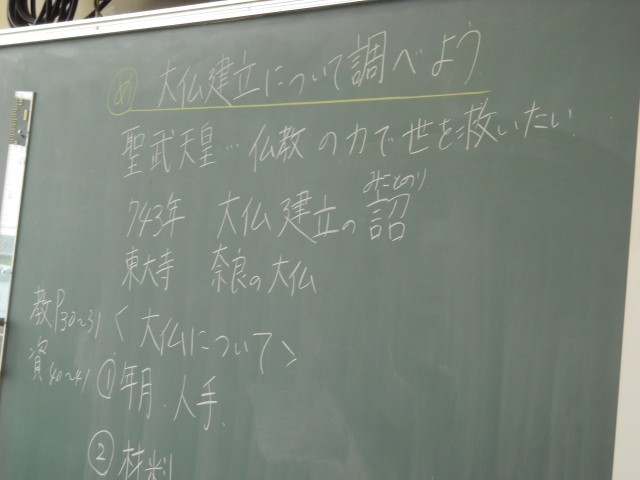 め 大仏建立について調べよう
聖武天皇…仏教の力で世を救いたい
みことのり
743年 大仏建立の詔
東大寺 奈良の大仏
教P30~31 <大仏について>
資40~41 ①年月.人手、
②材料